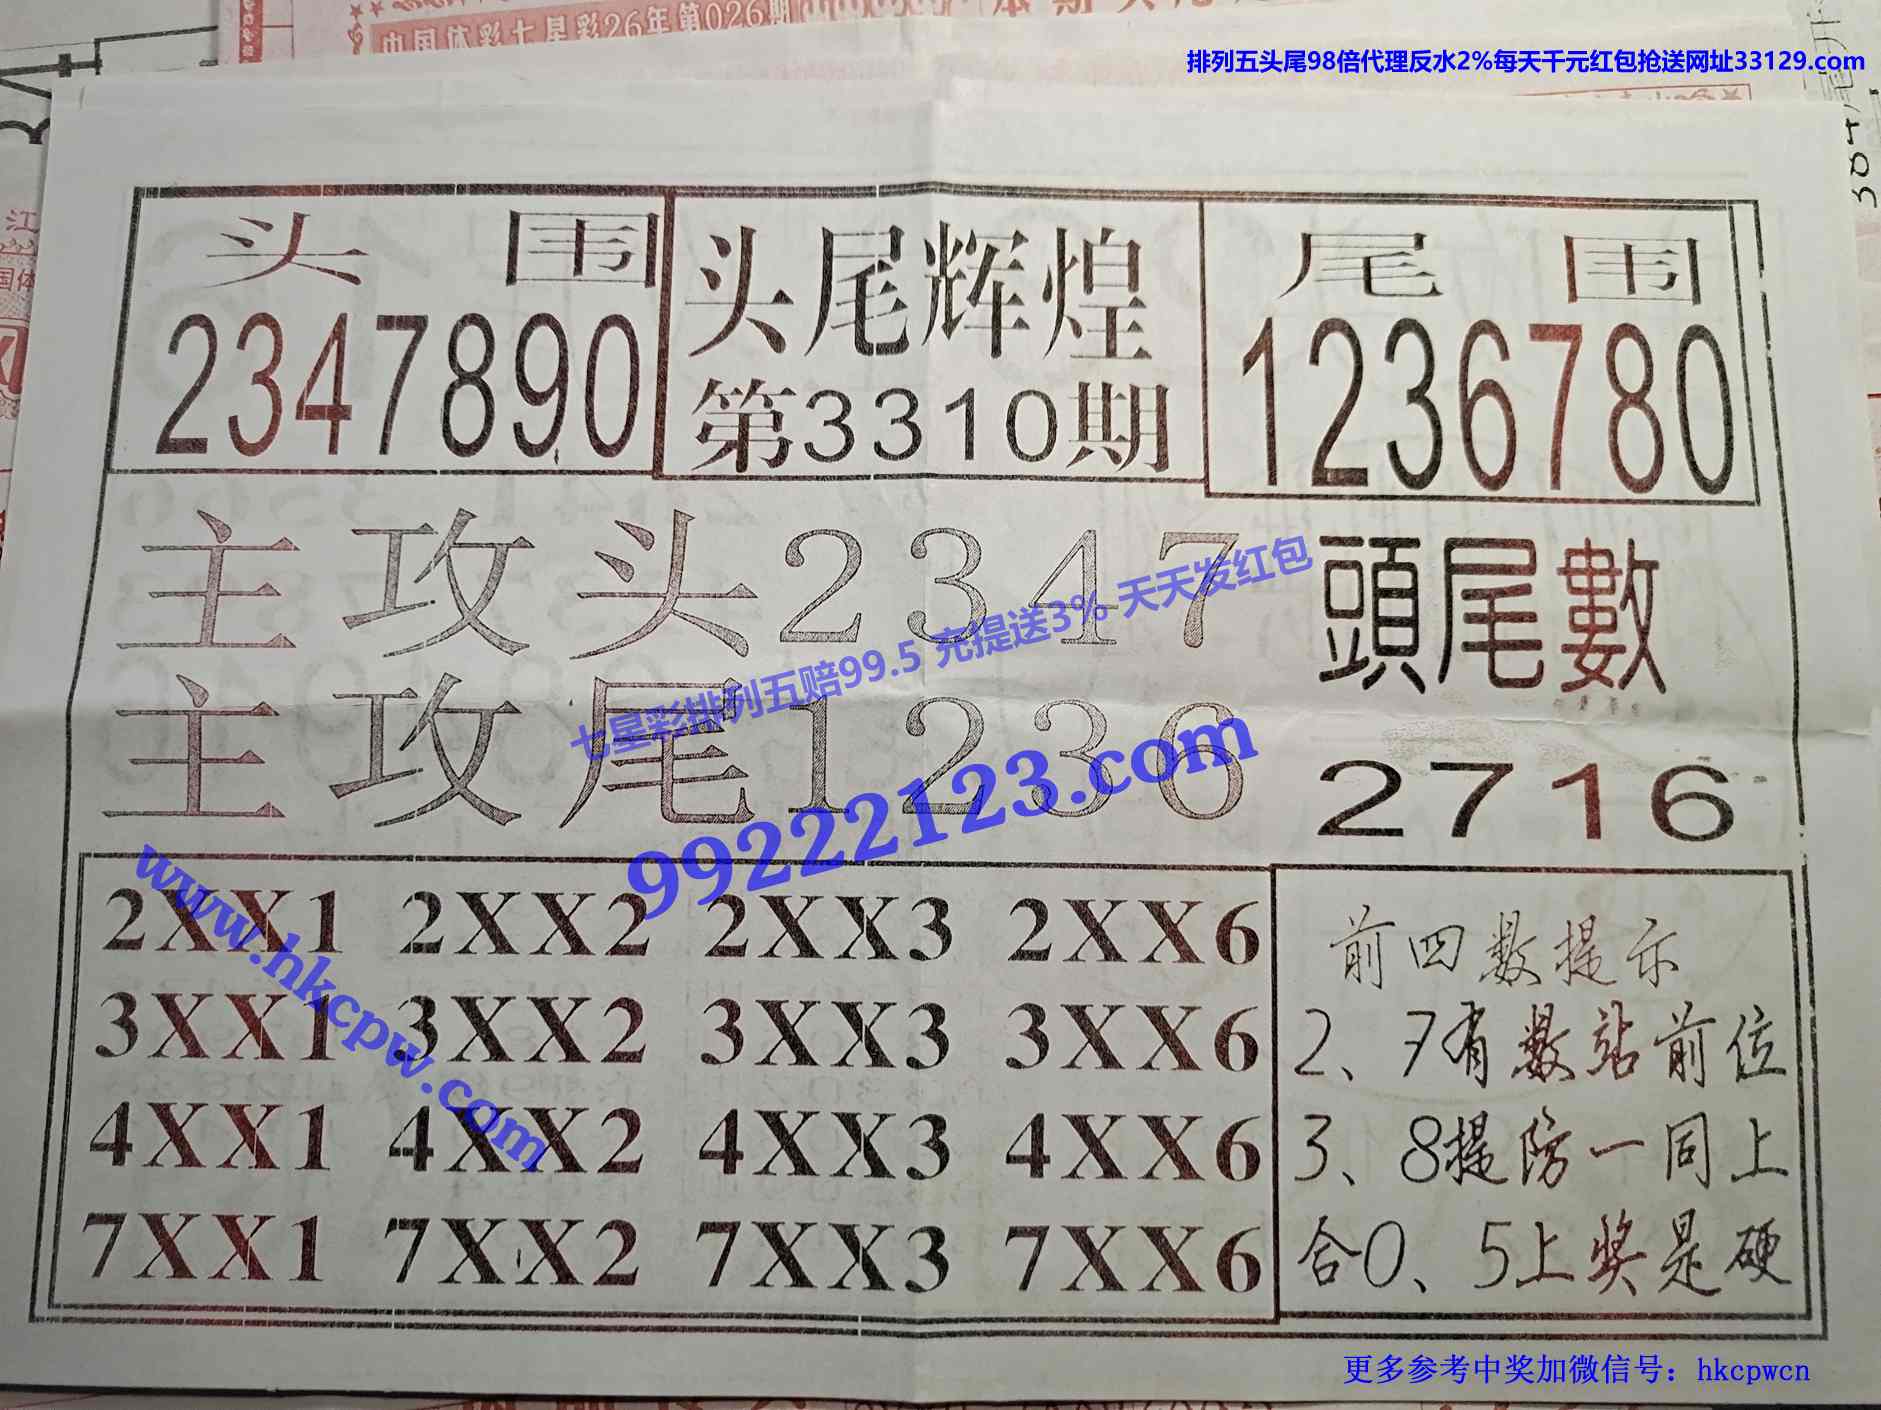 中国体彩七星彩26年第026期
排列五头尾98倍代理反水2%每天千元红包抢送网址33129.com
头 围
2347890
头尾辉煌
第3310期
尾 围
1236780
主攻头2347
主攻尾1236
頭尾數
2716
七星彩排列五赔99.5 充提送3% 天天发红包
99222123.com
www.hkcpw.com
2XX1 2XX2 2XX3 2XX6
3XX1 3XX2 3XX3 3XX6
4XX1 4XX2 4XX3 4XX6
7XX1 7XX2 7XX3 7XX6
前四数提示
2、7有数站前位
3、8提防一同上
合0、5上奖是硬
更多参考中奖加微信号：hkcpwcn